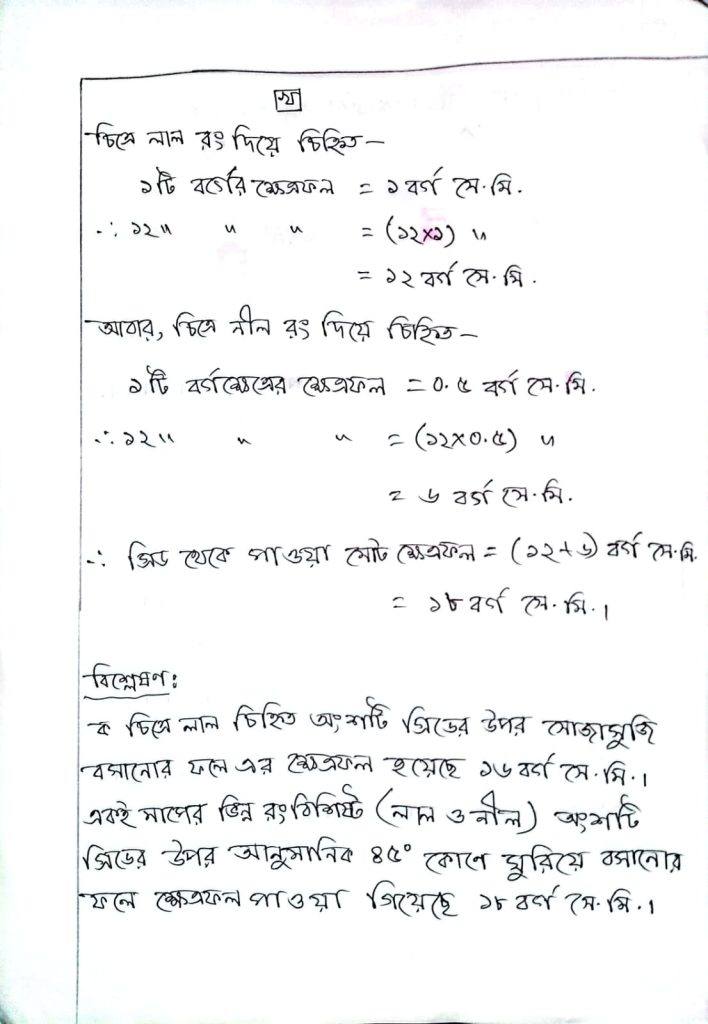 খ
চিত্রে লাল রং দিয়ে চিহ্নিত –
১টি বর্গের ক্ষেত্রফল = ১ বর্গ সে.মি.
∴ ১২ " " " = (১২×১) "
= ১২ বর্গ সে.মি.
আবার, চিত্রে নীল রং দিয়ে চিহ্নিত –
১টি বর্গক্ষেত্রের ক্ষেত্রফল = 0.৫ বর্গ সে.মি.
∴ ১২ " " " = (১২×0.৫) "
= ৬ বর্গ সে.মি.
∴ গ্রিড থেকে পাওয়া মোট ক্ষেত্রফল = (১২+৬) বর্গ সে.মি.
= ১৮ বর্গ সে.মি.।
বিশ্লেষণ:
ক চিত্রে লাল চিহ্নিত অংশটি গ্রিডের উপর সোজাসুজি
বসানোর ফলে এর ক্ষেত্রফল হয়েছে ১৬ বর্গ সে.মি.।
একই মাপের ভিন্ন রংবিশিষ্ট (লাল ও নীল) অংশটি
গ্রিডের উপর আনুমানিক ৪৫° কোণে ঘুরিয়ে বসানোর
ফলে ক্ষেত্রফল পাওয়া গিয়েছে ১৮ বর্গ সে.মি.।